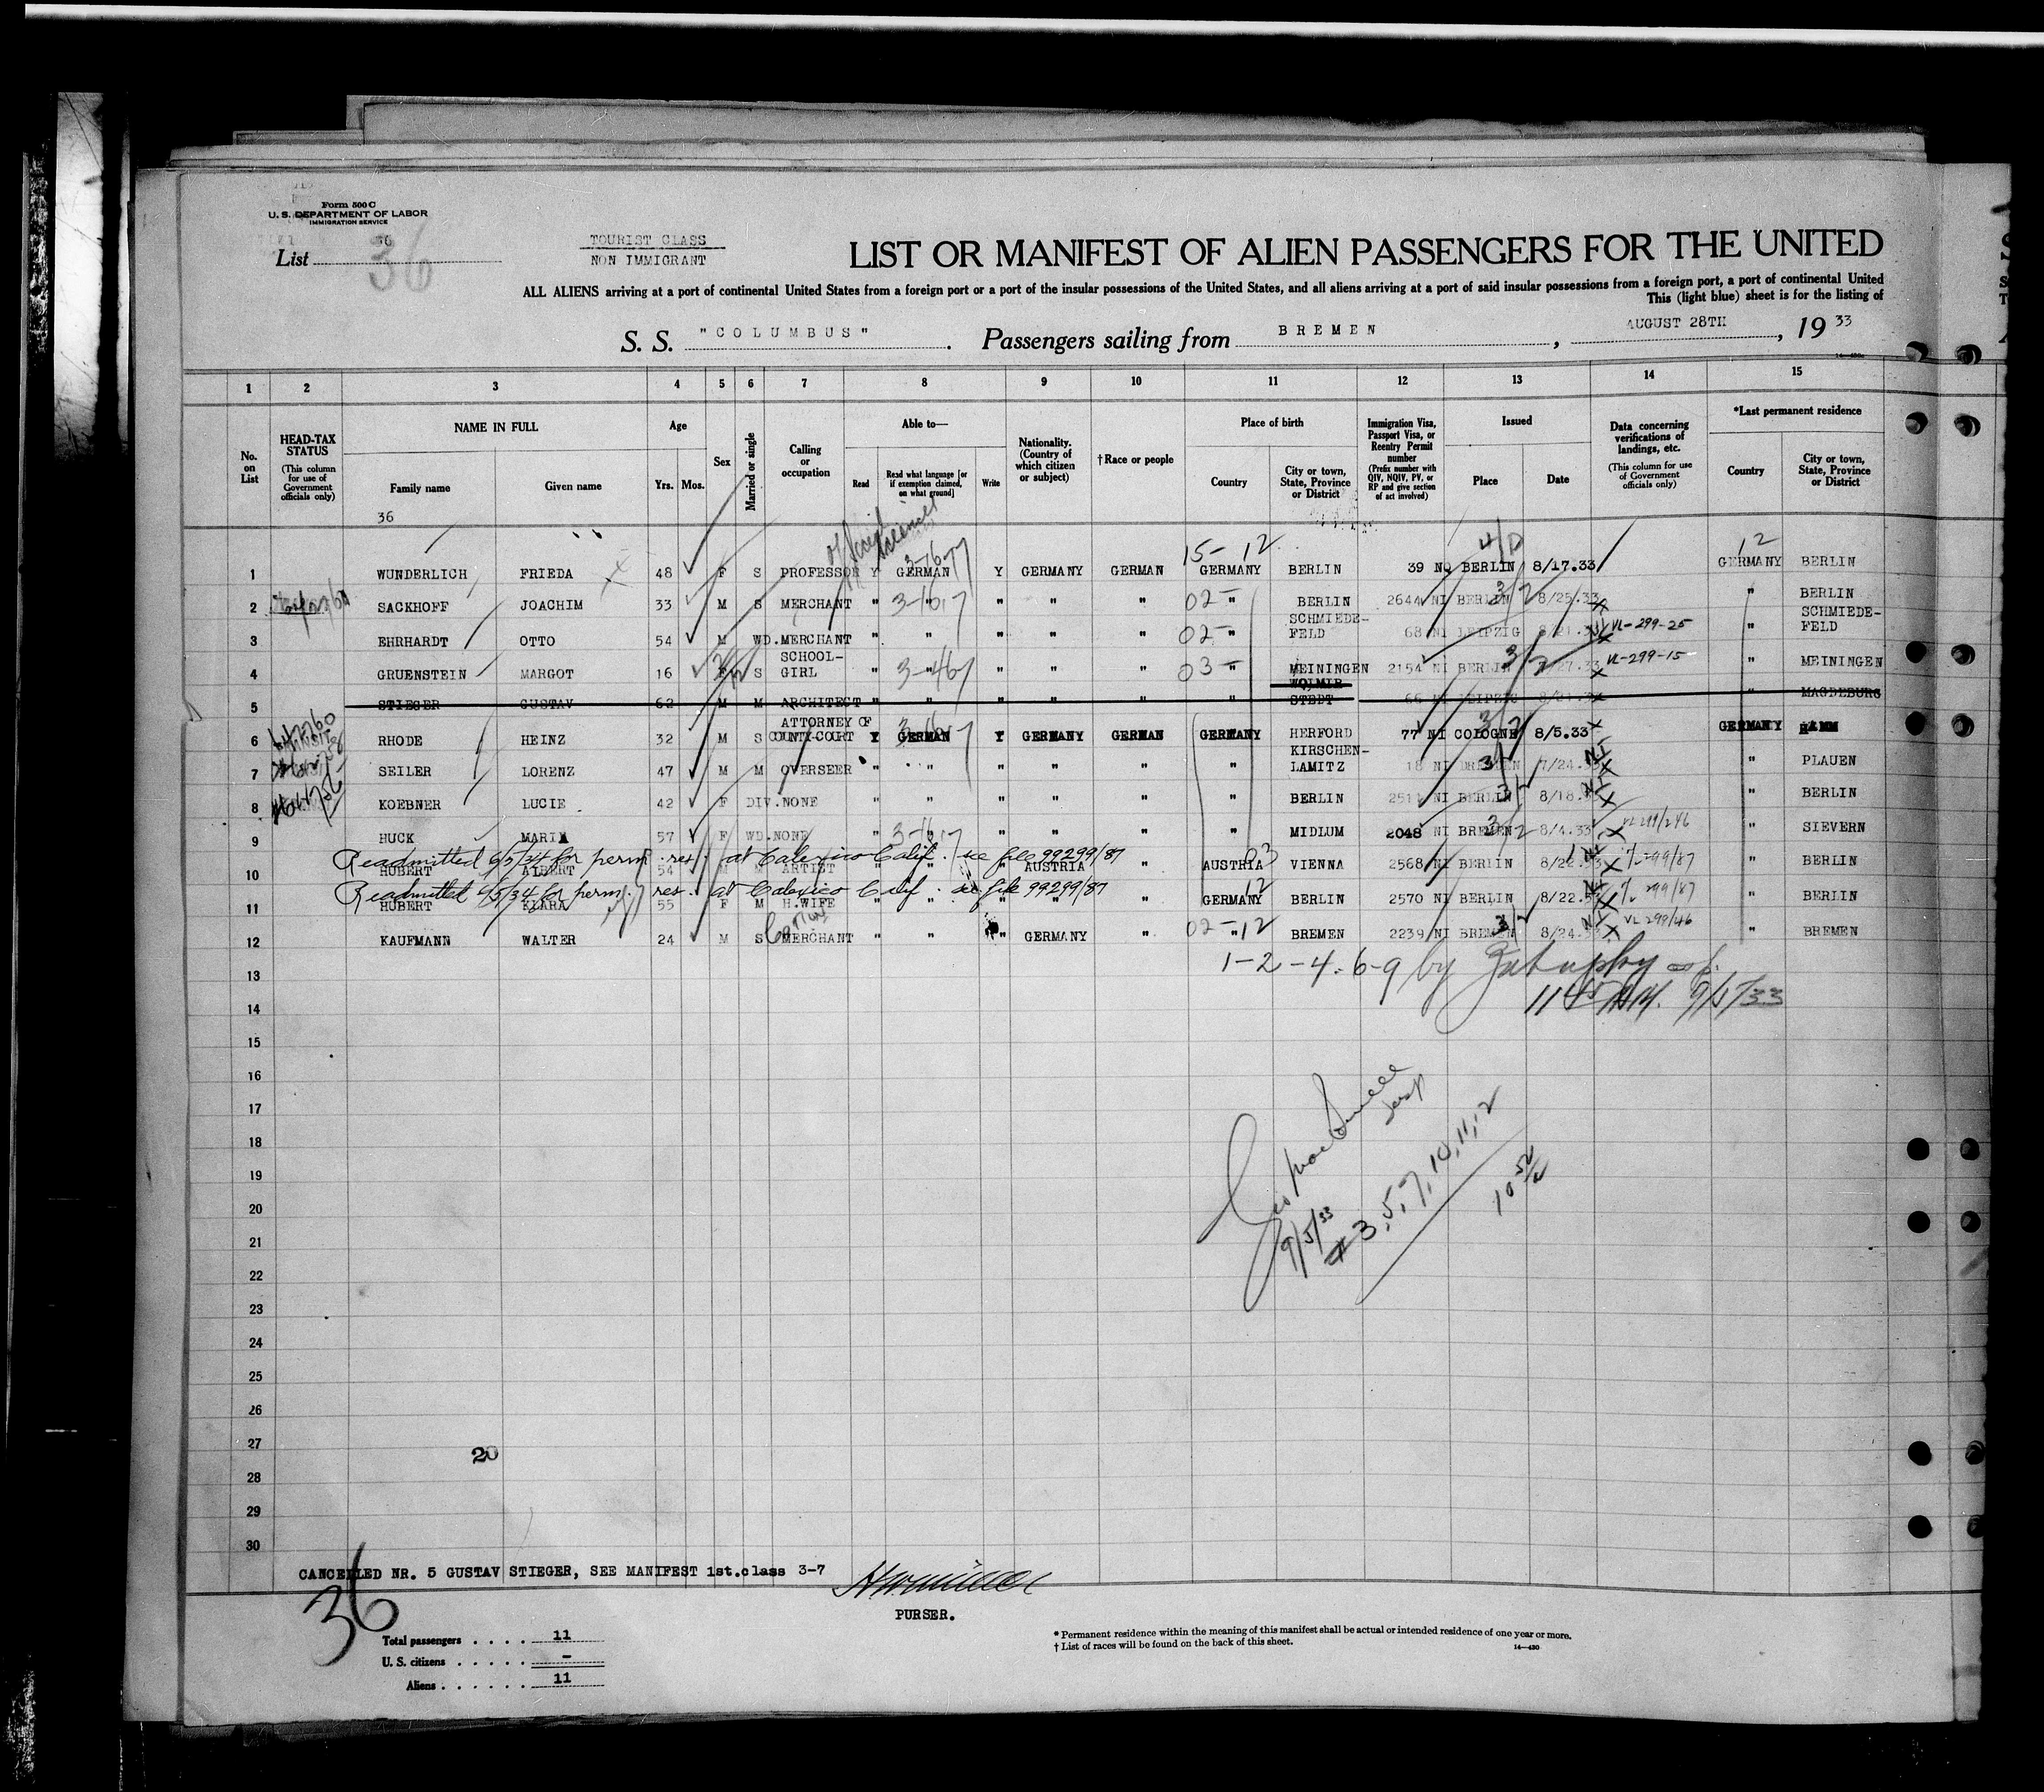 Form 500 C
U. S. DEPARTMENT OF LABOR
IMMIGRATION SERVICE
List 36
TOURIST CLASS
NON IMMIGRANT
LIST OR MANIFEST OF ALIEN PASSENGERS FOR THE UNITED
ALL ALIENS arriving at a port of continental United States from a foreign port or a port of the insular possessions of the United States, and all aliens arriving at a port of said insular possessions from a foreign port, a port of continental United
This (light blue) sheet is for the listing of
S. S. "COLUMBUS". Passengers sailing from BREMEN, AUGUST 28TH, 19 33
1 2 3 4 5 6 7 8 9 10 11 12 13 14 15
No. on List
HEAD-TAX STATUS (This column for use of Government officials only)
NAME IN FULL Family name Given name
Age Yrs. Mos.
Sex
Married or single
Calling or occupation
Able to— Read Read what language [or if exemption claimed, on what ground] Write
Nationality. (Country of which citizen or subject)
†Race or people
Place of birth Country City or town, State, Province or District
Immigration Visa, Passport Visa, or Reentry Permit number (Prefix number with QIV, NQIV, PV, or RP and give section of act involved)
Issued Place Date
Data concerning verifications of landings, etc. (This column for use of Government officials only)
*Last permanent residence Country City or town, State, Province or District
36
15- 12 12
1 WUNDERLICH FRIEDA 48 F S PROFESSOR Y GERMAN Y GERMANY GERMAN GERMANY BERLIN 39 NQ BERLIN 8/17.33 GERMANY BERLIN
2 SACKHOFF JOACHIM 33 M S MERCHANT " " " " " 02- " BERLIN 2644 NI BERLIN 8/25.33 " BERLIN
3 EHRHARDT OTTO 54 M WD. MERCHANT " " " " " 02- " SCHMIEDE-FELD 68 NI LEIPZIG VL-299-25 " SCHMIEDE-FELD
4 GRUENSTEIN MARGOT 16 F S SCHOOL-GIRL " " " " " 03- " MEININGEN 2154 NI BERLIN VL-299-15 " MEININGEN
5 STIEGER GUSTAV 62 M M ARCHITECT " " " " " " WOLMIRSTEDT 66 NI LEIPZIG " MAGDEBURG
6 RHODE HEINZ 32 M S ATTORNEY OF COUNTY-COURT Y GERMAN Y GERMANY GERMAN GERMANY HERFORD 77 NI COLOGNE 8/5.33 GERMANY HAMM
7 SEILER LORENZ 47 M M OVERSEER " " " " " " KIRSCHEN-LAMITZ 18 NI DRESDEN 7/24. " PLAUEN
8 KOEBNER LUCIE 42 F DIV. NONE " " " " " " BERLIN NI BERLIN 8/18. " BERLIN
9 HUCK MARIA 57 F WD. NONE " " " " " " MIDLUM 2048 NI BREMEN 8/4.33 VL 299/246 " SIEVERN
Readmitted 6/5/34 for perm. res. at Calexico Calif. see file 99299/87
10 HUBERT ALBERT 54 M M ARTIST " " " AUSTRIA " AUSTRIA VIENNA 2568 NI BERLIN 8/22. 299/87 " BERLIN
Readmitted 6/5/34 for perm. res. at Calexico Calif. see file 99299/87
11 HUBERT KLARA 55 F M H.WIFE " " " " " GERMANY BERLIN 2570 NI BERLIN 8/22. 299/87 " BERLIN
12 KAUFMANN WALTER 24 M S MERCHANT " " " GERMANY " 02-12 " BREMEN 2239 NI BREMEN 8/24. VL 299/46 " BREMEN
13 1-2-4-6-9 by
14 9/5/33
15
16
17
18
19
20
21
22
23
24
25
26
27
28
29
30
9/5/33
# 3, 5, 7, 10, 11, 12
20
CANCELLED NR. 5 GUSTAV STIEGER, SEE MANIFEST 1st.class 3-7
PURSER.
36
Total passengers . . . . 11
U. S. citizens . . . . . –
Aliens . . . . . . 11
* Permanent residence within the meaning of this manifest shall be actual or intended residence of one year or more.
† List of races will be found on the back of this sheet.
14—430